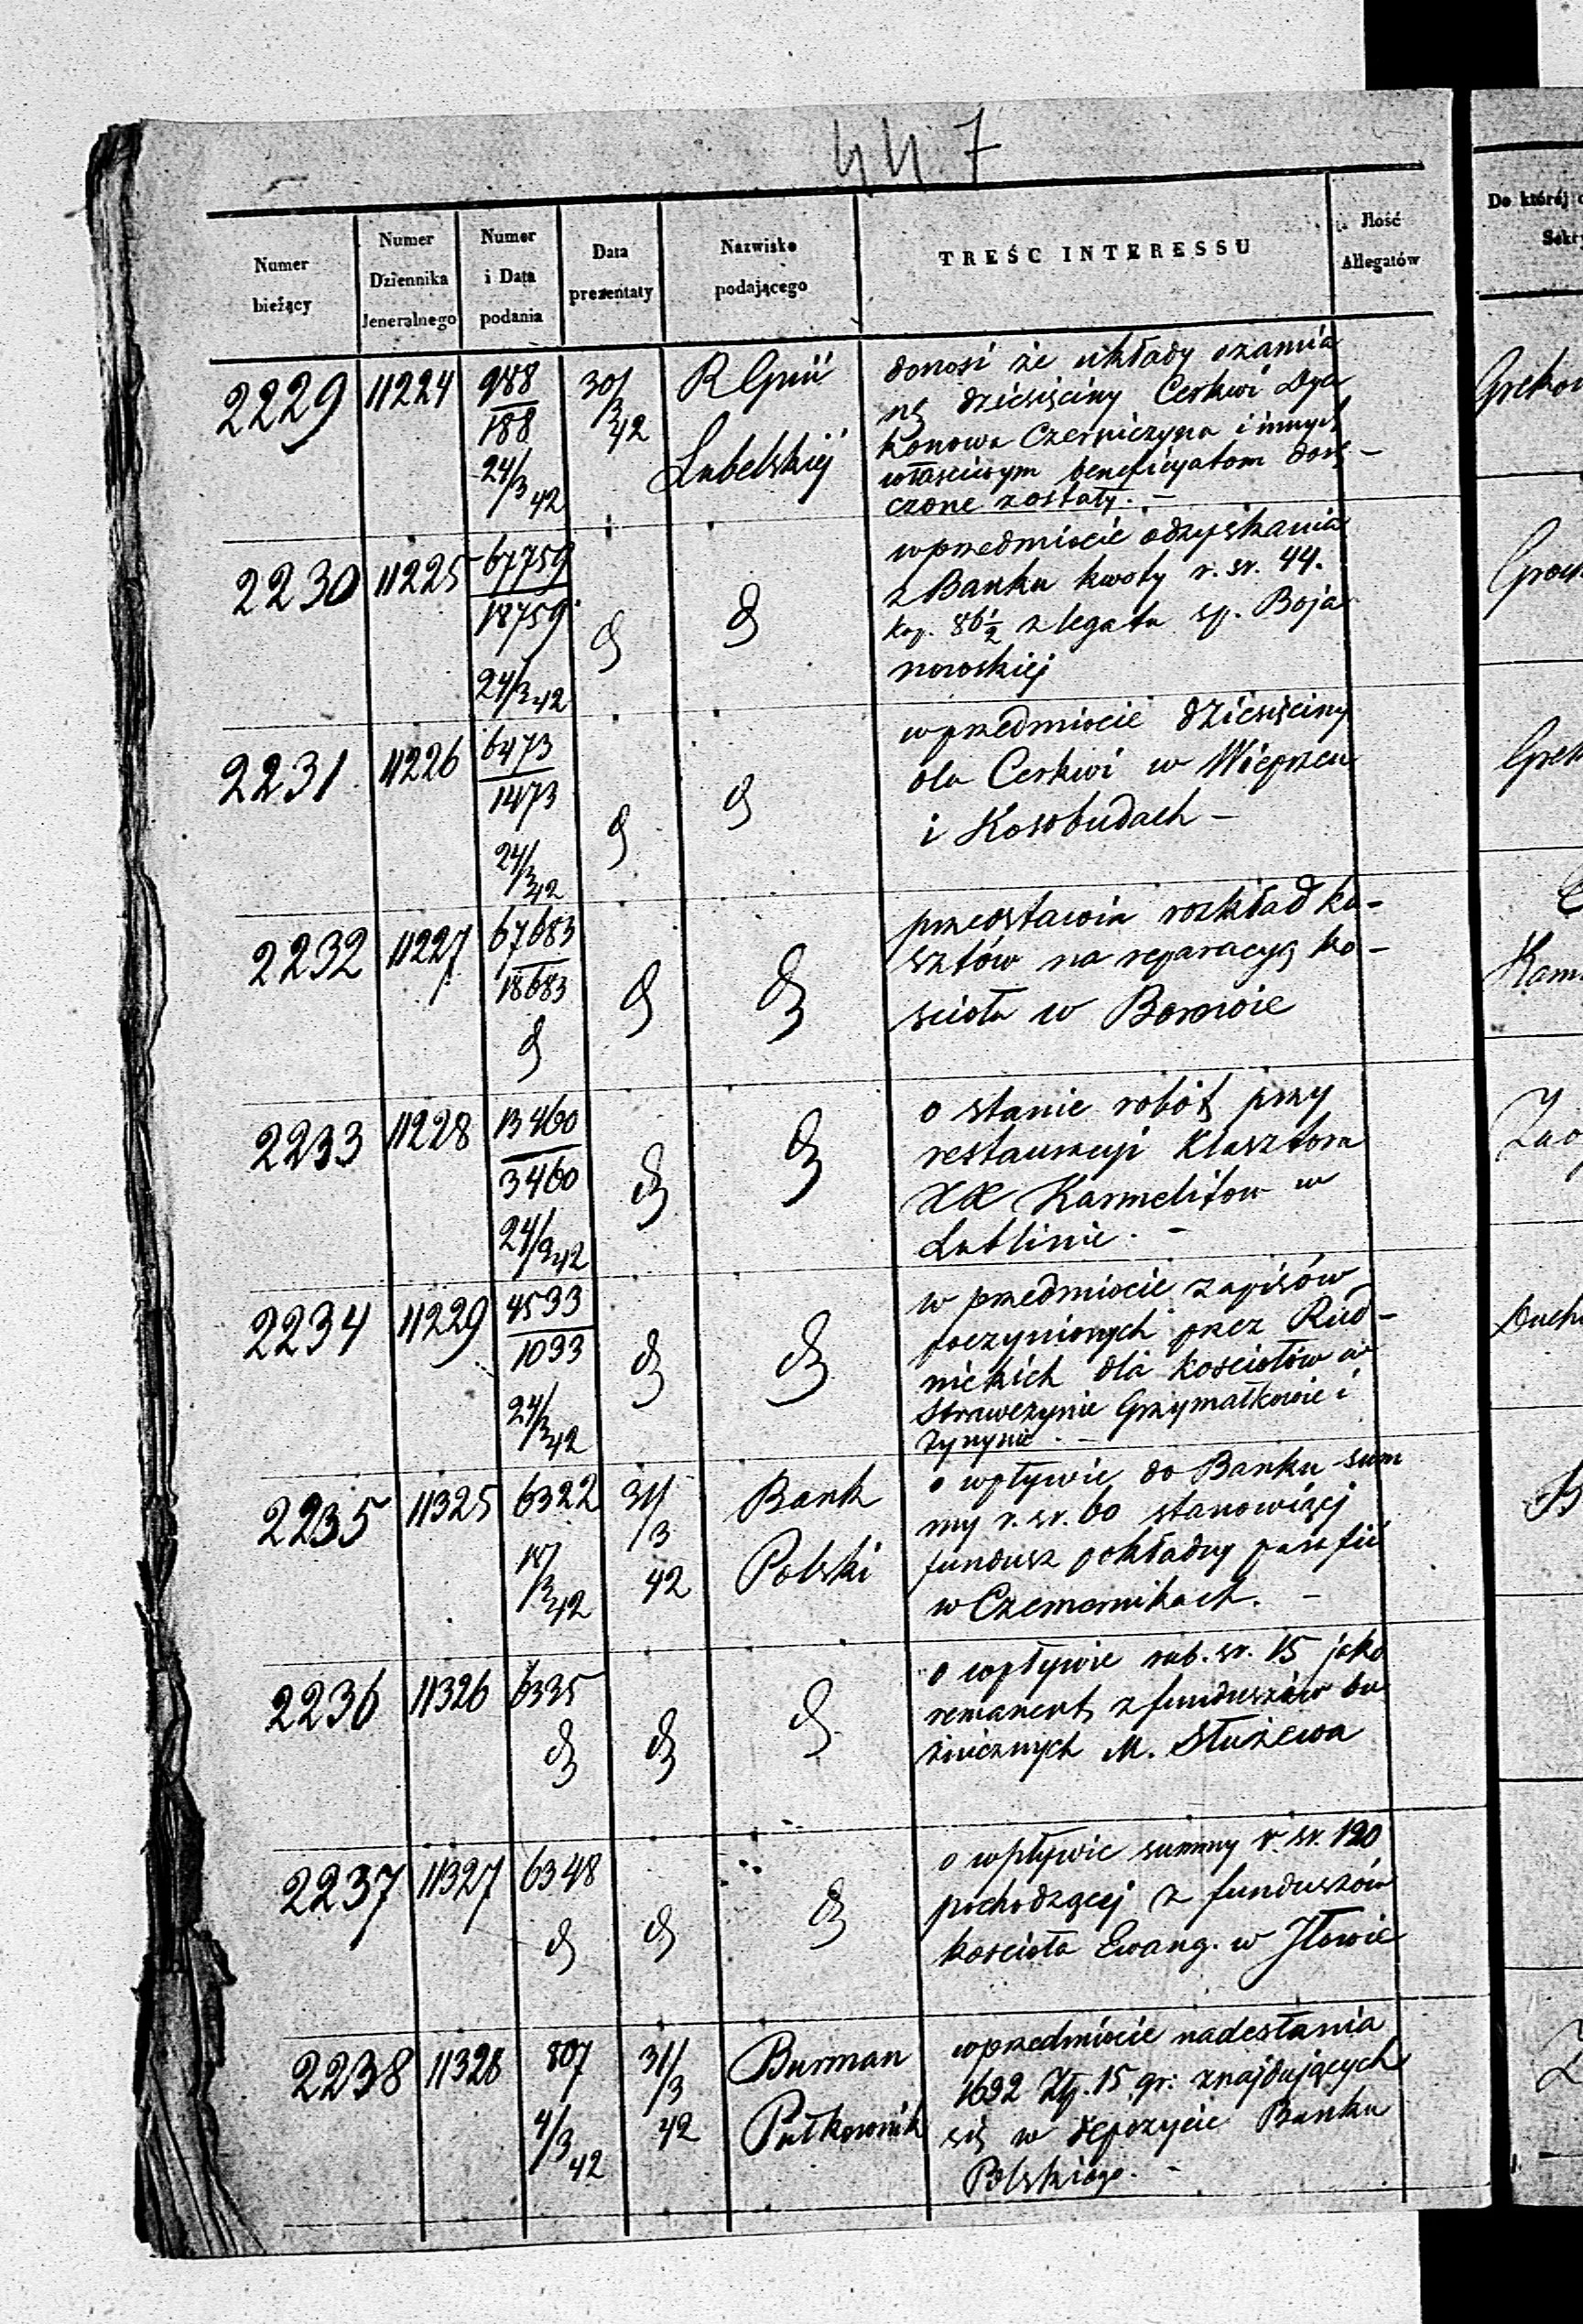 447
Numer
bieżący
Numer
Dziennika
Jeneralnego
Numer
i Data
podania
Data
prezentaty
Nazwisko
podającego
TREŚĆ INTERESSU
Ilość
Allegatów
Do której
2229
11224
988
188
24/3 42
30/3 42
R Gpńii
Lubelskiéj
donosi że układy ozamia
nę dziesięciny Cerkwi Dya
konowa Czerniczyna i innych
właściwym beneficyatom dorę –
czone zostały. –
2230
11225
67759
18759
24/3 42
wprzedmiocie odzyskania
z Banku kwoty r. sr. 44.
kop. 86½ z legatu sp. Boja
nowskiej
2231
11226
6473
1473
24/3 42
wprzedmiocie dziesięciny
dla Cerkwi w Wieprzcu
i Kosobudach –
2232
11227
67683
18683
przedstawia rozkład ko-
sztów na reparacyą ko-
scioła w Borowie
2233
11228
13460
3460
24/3 42
o stanie robót przy
restauracyi Klasztoru
XX Karmelitow w
Lublinie. –
2234
11229
4533
1033
24/3 42
w przedmiocie zapisów
poczynionych przez Rud-
nickich dla kosciołów w
Strawczynie Grzymałkowie i
2235
11325
6322
31/3 42
Bank
Polski
o wpływie do Banku sum
my r. sr. 60 stanowiącej
fundusz pokładny parafii
w Czemiernikach. –
2236
11326
6335
o wpływie rub. sr. 15 jako
remanent z funduszów bo
żniczných M. Służewa
2237
11327
6348
o wpływie summy r. sr. 120
pochodzącej z funduszów
kosciola Ewang. w Iłowie
2238
11328
807
4/3 42
31/3 42
Burman
Pułkownik
wprzedmiocie nadesłania
1692 Złp. 15 gr: znajdujących
się w depozycie Banku
Polskiego. –